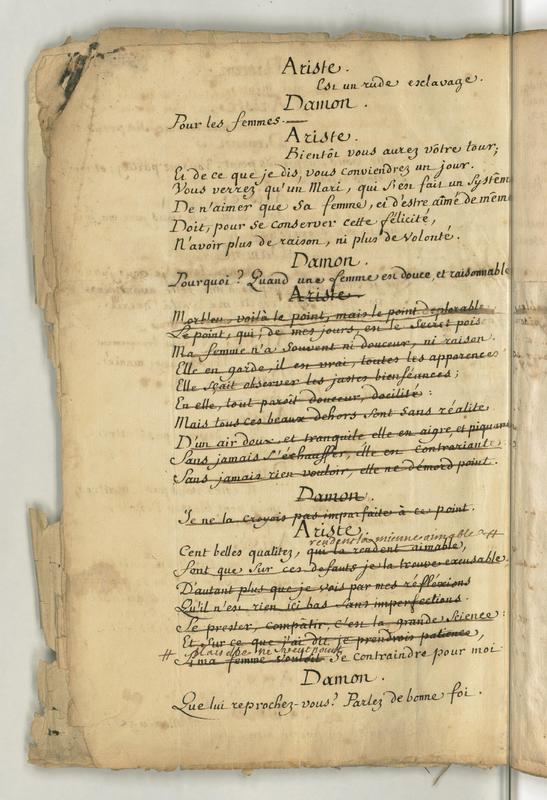 Ariste.
Est un rude esclavage.
Damon.
Pour les femmes.
Ariste.
Bientôt vous aurez vôtre tour;
Et de ce que je dis, vous conviendrez un jour.
Vous verrez qu'un Mari, qui s'en fait un System
De n'aimer que sa femme, et d'estre aimé de mêm
Doit, pour se conserver cette félicité,
N'avoir plus de raison, ni plus de volonté.
Damon.
Pourquoi? Quand une femme est douce, et raisonnable
Ariste.
Morbleu, voilà le point, mais le point deplorable
Le point, qui, de mes jours, est le secret pois
Ma femme n'a souvent ni douceur, ni raison.
Elle en garde, il est vrai, toutes les apparences
Elle sçait observer les justes bienséances;
En elle, tout paroît douceur, docilité:
Mais tous ces beaux dehors sont sans réalité
D'un air doux, et tranquile elle en aigre, et piquan
Sans jamais s'échauffer, elle est contrariante:
Sans jamais rien vouloir, elle ne démord point.
Damon.
Je ne la croyois pas imparfaite à ce point.
Ariste.
rendent la mienne aimable #
Cent belles qualitez, qui la rendent aimable,
Font que sur ces defauts je la trouve excusable.
D'autant plus que je vois par mes réflexions
Qu'il n'est rien ici bas sans imperfections.
Se prester, compâtir, c'est la grande science:
Et sur ce que j'ai dit je prendrois patience,
# Mais elle ne veut point
Si ma femme vouloit se contraindre pour moi
Damon.
Que lui reprochez-vous? Parlez de bonne foi.